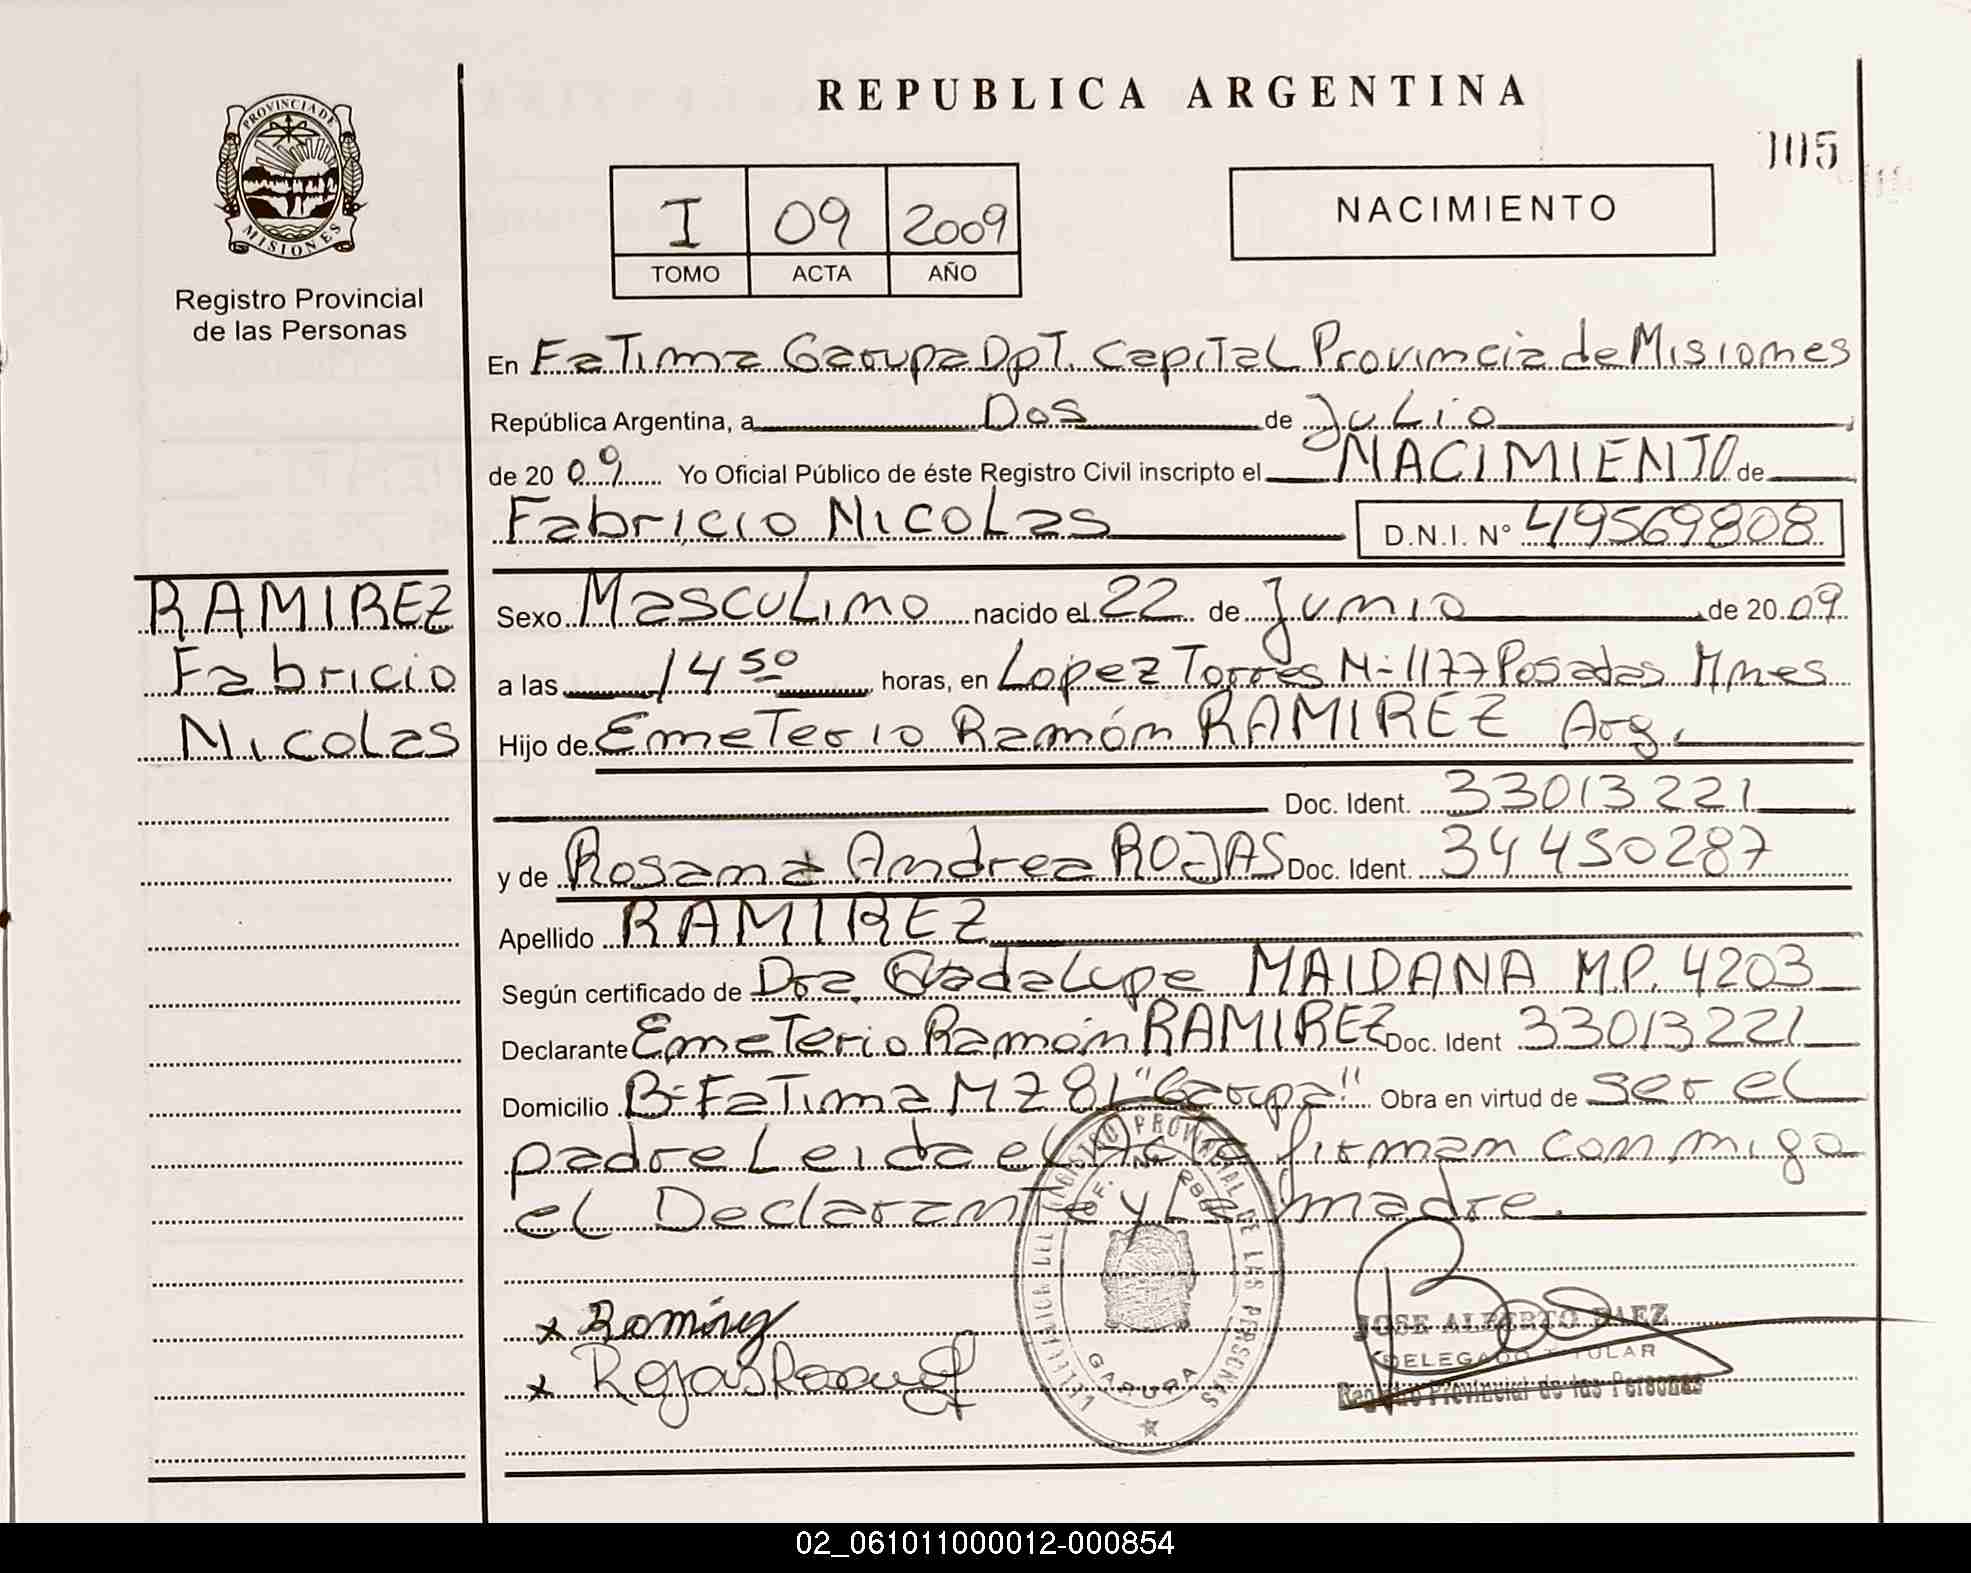 REPUBLICA ARGENTINA
105
PROVINCIA DE
MISIONES
Registro Provincial
de las Personas
I 09 2009
TOMO ACTA AÑO
NACIMIENTO
En Fatima Garupa Dpt. Capital Provincia de Misiones
República Argentina, a Dos de Julio
de 2009 Yo Oficial Público de éste Registro Civil inscripto el NACIMIENTO de
Fabricio Nicolas D.N.I. N° 49569808
RAMIREZ
Fabricio
Nicolas
Sexo Masculino nacido el 22 de Junio de 2009
a las 14 50 horas, en Lopez Torres N- 1177 Posadas Mnes
Hijo de Emeterio Ramón RAMIREZ Arg.
Doc. Ident. 33013221
y de Rosana Andrea ROJAS Doc. Ident. 34450287
Apellido RAMIREZ
Según certificado de Dra. Guadalupe MAIDANA M.P. 4203
Declarante Emeterio Ramón RAMIREZ Doc. Ident 33013221
Domicilio B- Fatima MZ 81 "Garupa" Obra en virtud de ser el
padre Leida el Acta firman conmigo
el Declarante y La madre.
DELEGACION DEL REGISTRO PROVINCIAL DE LAS PERSONAS
GARUPA
x Ramirez
x Rojas
JOSE ALBERTO BAEZ
DELEGADO TITULAR
Registro Provincial de las Personas
02_061011000012-000854